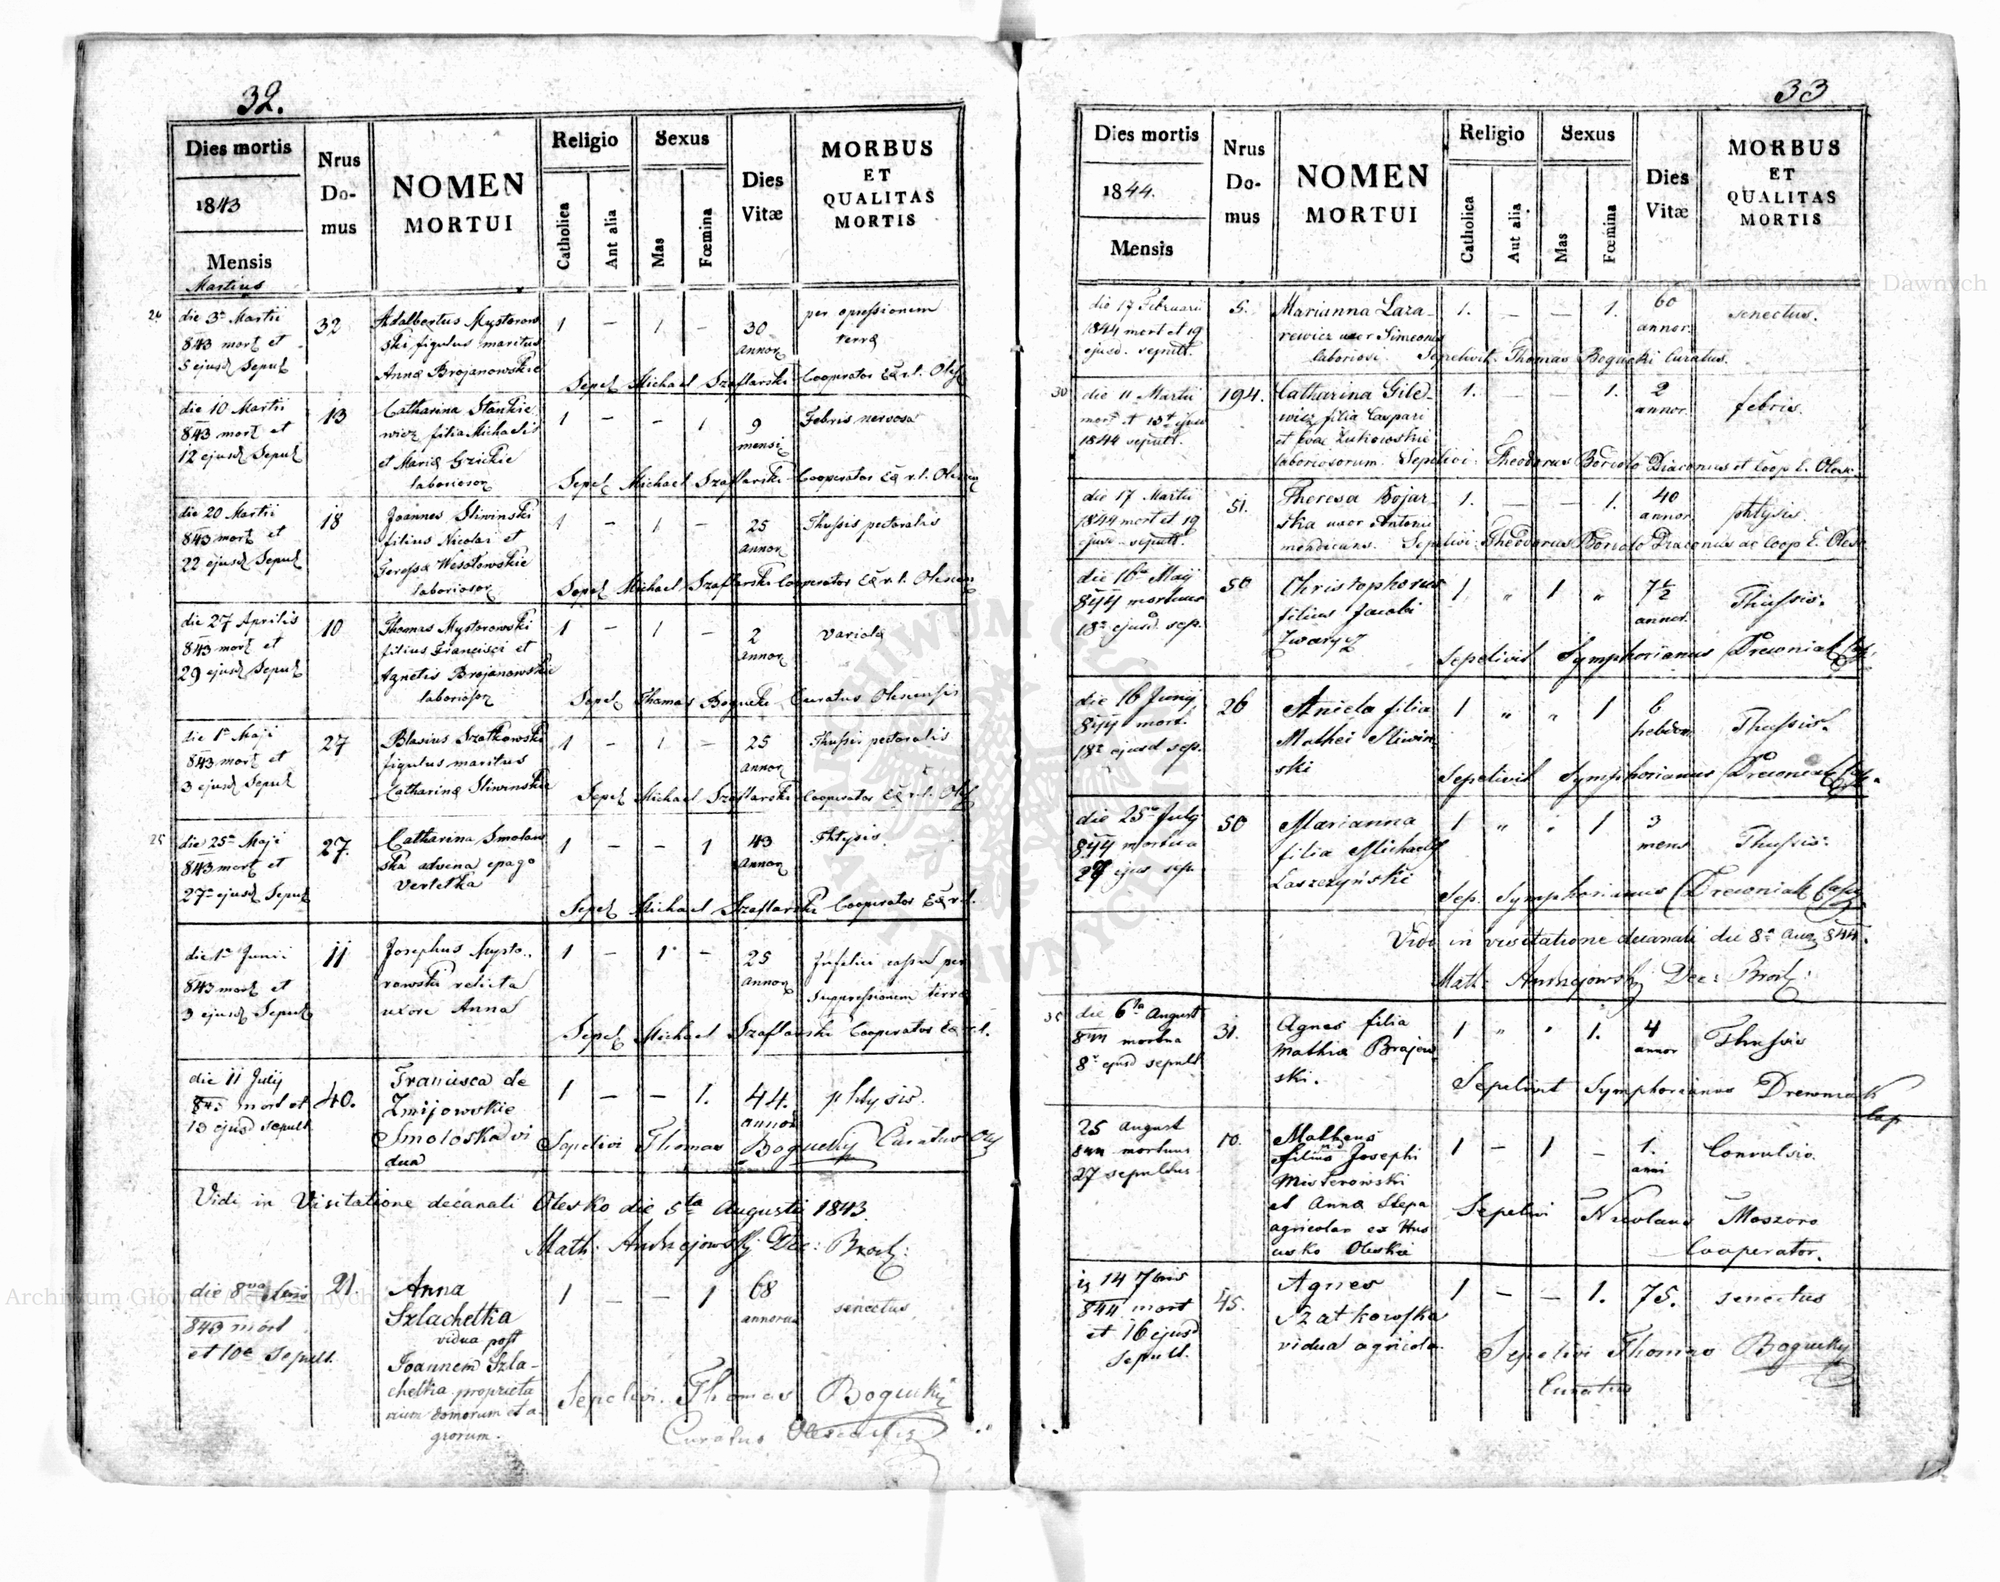 32.
Dies mortis
1843
Mensis
Martius
Nrus Do- mus
NOMEN
MORTUI
Religio
Catholica
Aut alia
Sexus
Mas
Fœmina
Dies
Vitæ
MORBUS
ET
QUALITAS
MORTIS
die 3a Martii
843 mort et
5 ejusd Sepult
32
Adalbertus Mystorow
ski figulus maritus
Anna Brojanowskie
1 – 1 –
30
annor
per opressionem
terra
Sepel Michael Szaflarski Cooperator
die 10 Martii
843 mort et
12 ejusd Sepult
13
Catharina Stankie
wicz filia Michaelis
et Maria Grickie
laboriosor
1 – – 1
9
mensi
Febris nervosa
Sepel Michael Szaflarski Cooperator
die 20 Martii
843 mort et
22 ejusd Sepult
18
Joannes Sliwinski
filius Nicolai et
Teressa Wesołowskie
laboriosor
1 – 1 –
25
annor
Thussis pectoralis
Sepel Michael Szaflarski Cooperator
die 27 Aprilis
843 mort et
29 ejusd Sepult
10
Thomas Mystorowski
filius Francisci et
Agnetis Brojanowskie
laboriosor
1 – 1 –
2
annor
variola
Sepel Thomas Bogucki Curatus Olesnensis
die 1a Maji
843 mort et
3 ejusd Sepult
27
Blasius Szatkowski
figulus maritus
Catharina Sliwinskie
1 – 1 –
25
annor
Thussis pectoralis
Sepel Michael Szaflarski Cooperator
25
die 25a Maji
843 mort et
27a ejusd Sepult
27.
Catharina Smolaw
ska advena e pago
Vertetka
1 – – 1
43
annor
Phtysis.
Sepel Michael Szaflarski Cooperator
die 1a Junii
843 mort et
3 ejusd Sepult
11
Josephus Mysto..
rowski relicta
uxore Anna
1 – 1 –
25
annor
Infelici casu per
suppressionem terra
Sepel Michael Szaflarski Cooperator
die 11 July
843 mort et
13 ejusd sepult
40.
Francisca de
Zmijowskie
Smoloska vi
dua
1 – – 1.
44.
annor
phtysis.
Sepelivi Thomas Bogucky Curatus
Vidi in Visitatione decanali Olesko die 5ta Augusti 1843.
Math. Andrejowsky Dec: Brod:
die 8va
843 mort
et 10a Sepult.
21.
Anna
Szlachetka
vidua post
Joannem Szla-
chetka proprieta
rium domorum et a-
grorum.
1 – – 1
68
annorum
senectus
Sepelivi Thomas Bogucki
Curatus
33
Dies mortis
1844.
Mensis
Nrus
Do-
mus
NOMEN
MORTUI
Religio
Catholica
Aut alia
Sexus
Mas
Fœmina
Dies
Vitæ
MORBUS
ET
QUALITAS
MORTIS
die 17 Februari
1844 mort et 19
ejusd. sepult.
5.
Marianna Laza-
rewicz uxor Simeonis
laboriosi.
1. – – 1.
60
annor.
senectus.
Sepelivit Thomas Bogucki Curatus.
30
die 11 Martii
mort et 13t ejus
1844 sepult.
194.
Catharina Gile-
wicz filia Caspari
et Evae Żukowskie
laboriosorum.
1. – – 1.
2
annor.
febris.
Sepelivi Theodorus Diaconus et Coop
die 17 Martii
1844 mort et 19
ejusd. sepult.
51.
Theresa Bojar-
ska uxor Antonii
mendicans.
1. – – 1.
40
annor
phtysis.
Sepelivi Theodorus Diaconus ac Coop
die 16a Maij
844 mortuus
18a ejusd. sep.
50
Christophorus
filius Jacobi
Zwarycz
1 " 1 "
7½
annor.
Thussis.
Sepelivit Symphorianus Drewniak Cap.
die 16 Junij
844 mort.
18a ejusd sep.
26
Aniela filia
Mathei Sliwin
ski
1 " " 1
6
hebdom
Thussis.
Sepelivit Symphorianus Drewniak Cap.
die 25a July
844 mortua
27 ejus sep.
50
Marianna
filia Michaelis
Laszczyńskie
1 " " 1
3
mens
Thussis.
Sep. Symphorianus Drewniak Cap.
Vidi in visitatione decanali die 8a Aug 844.
Math. Andrejowsky Dec: Brod:
35
die 6ta August
844 mortua
8a ejusd sepult
31.
Agnes filia
Mathia Brajow
ski.
1 " " 1.
4
annor
Thussis
Sepelivit Symphorianus Drewniak
Cap
25 August
844 mortuus
27 sepultus
10.
Matheus
filius Josephi
Misterowski
et Anna Stepa
agricolar ex
Oleskie
1 – 1 –
1.
anni
Convulsio.
Sepelivi Nicolaus Moszoro
Cooperator.
14 7bris
844 mort
et 16 ejusd
sepult.
45.
Agnes
Szatkowska
vidua agricola.
1 – – 1.
75.
senectus
Sepelivi Thomas Bogucky
Curatus
Archiwum Główne Akt Dawnych
Archiwum Główne Akt Dawnych